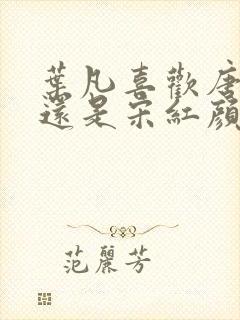 葉凡喜歡唐
還是宋紅顏
范麗芳